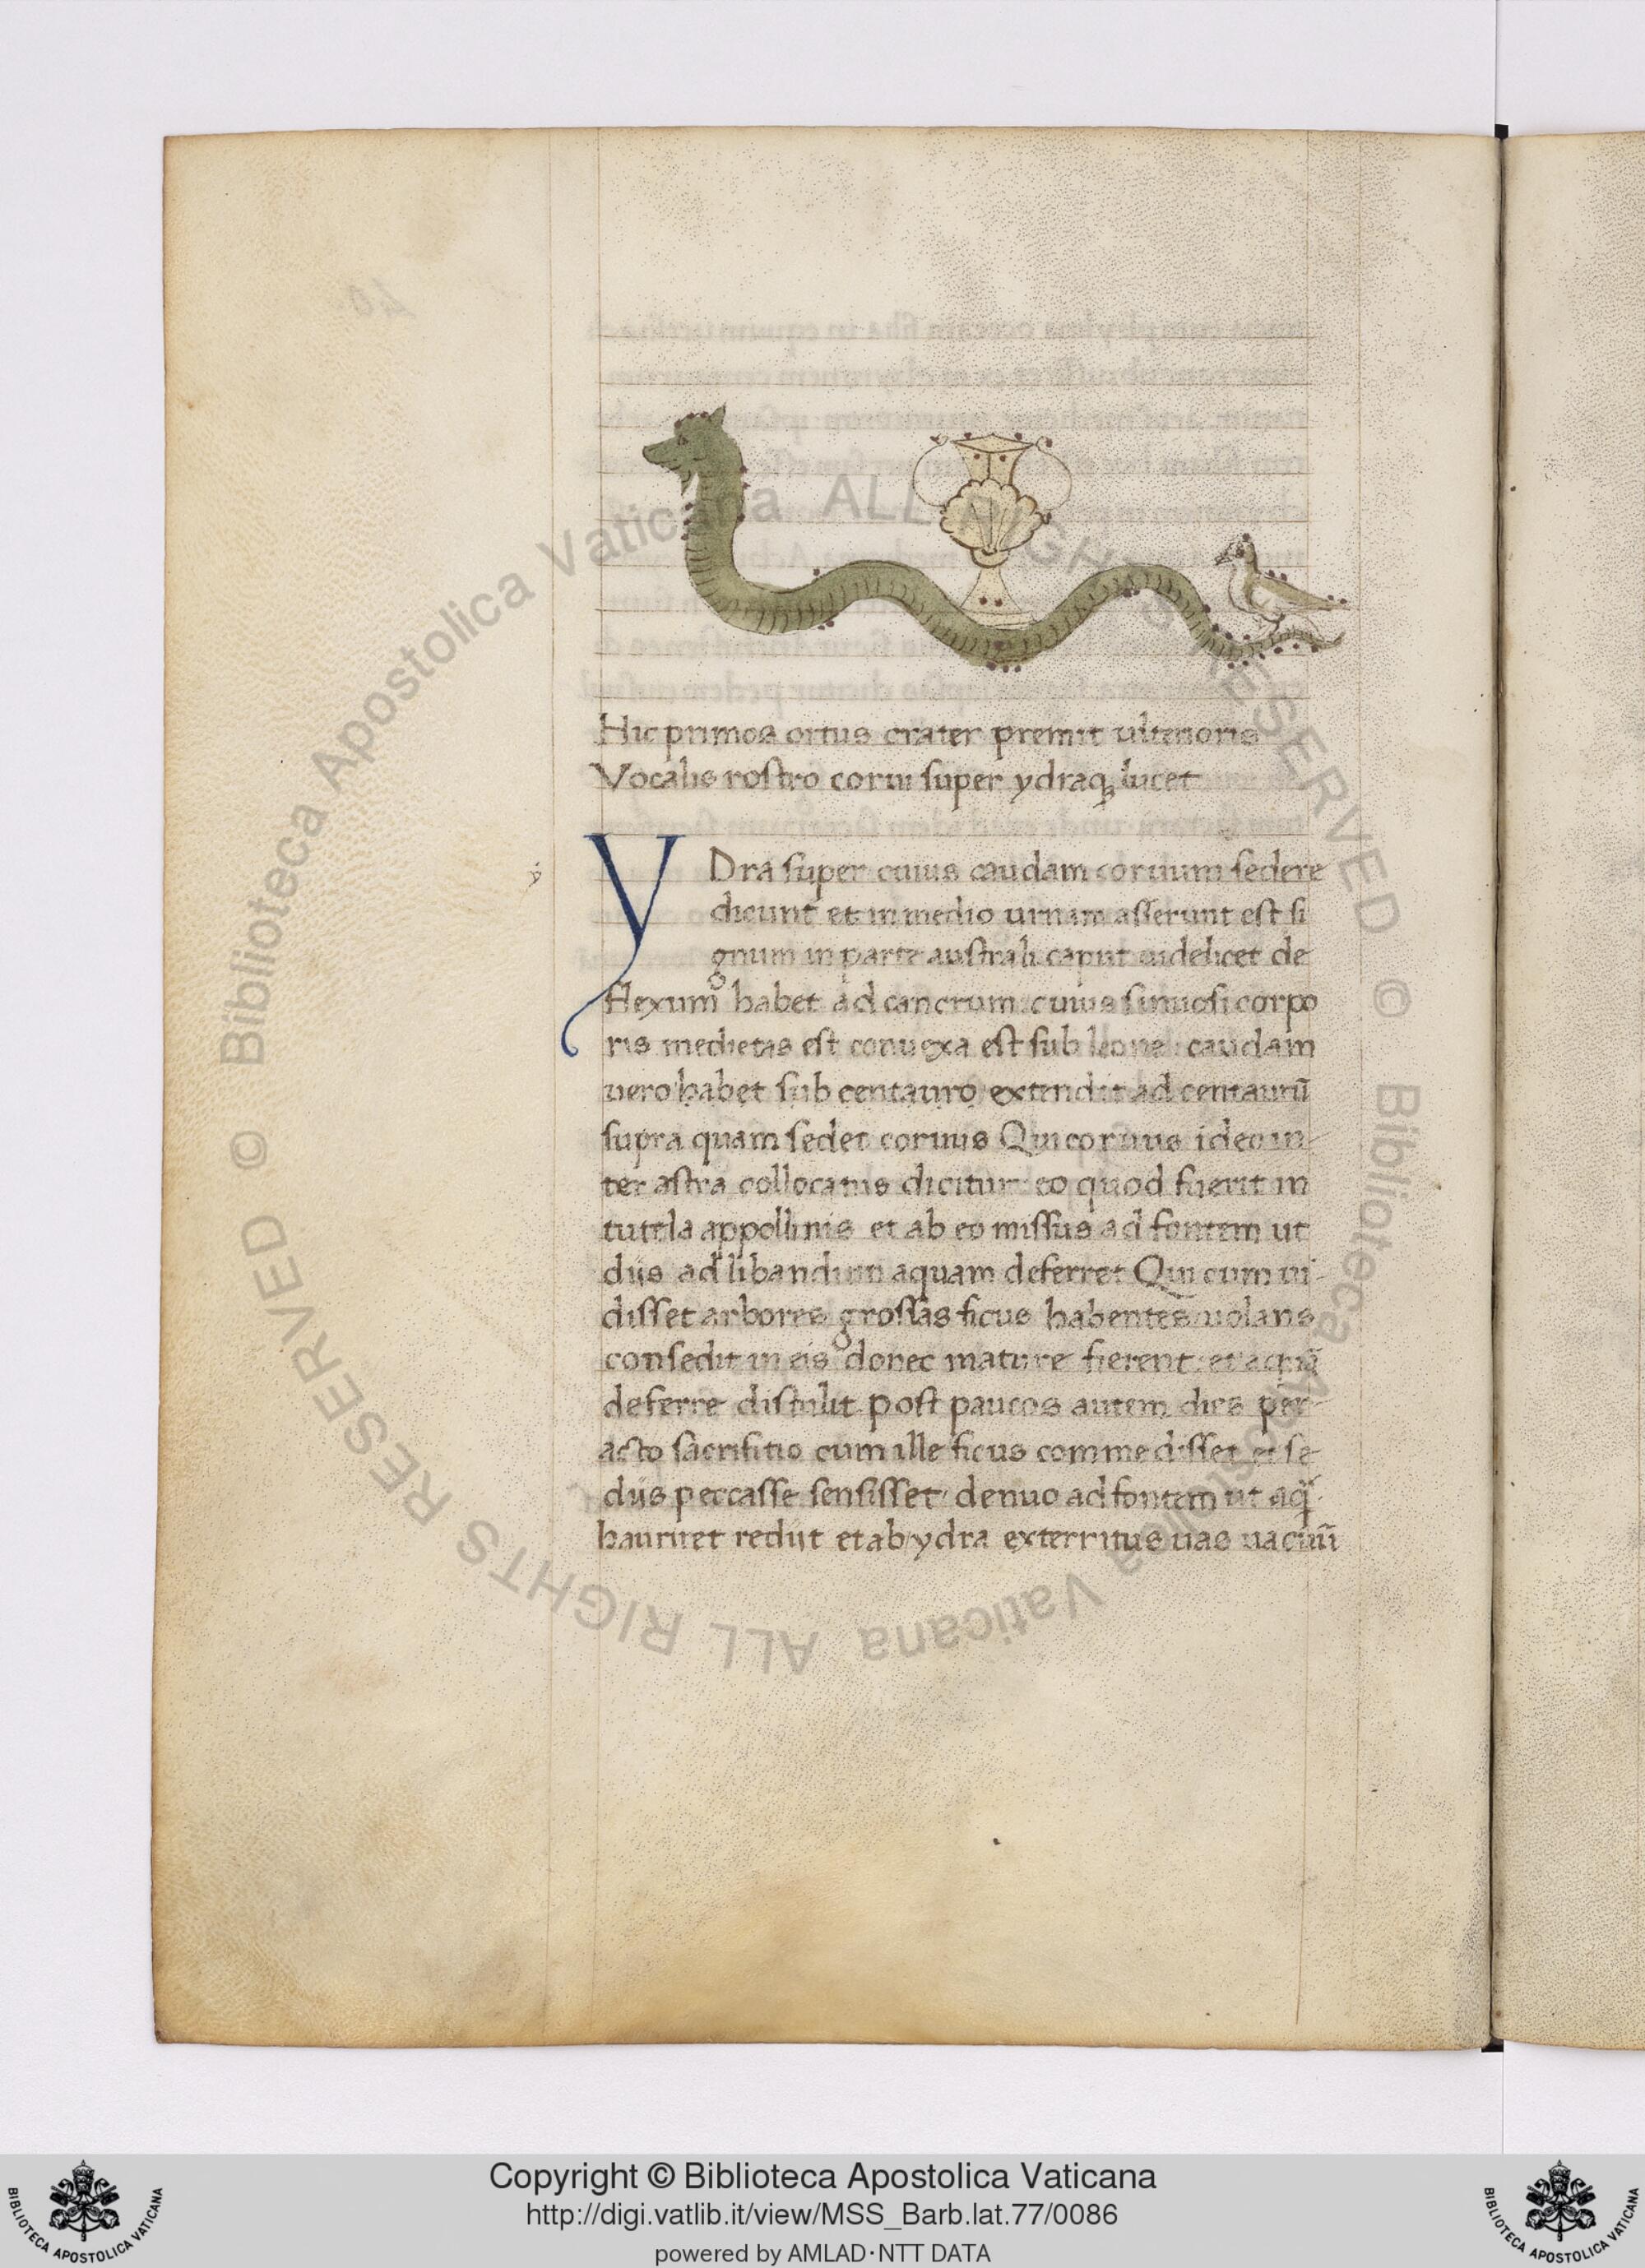 Hic primos ortus crater premit ulterioris
Vocalis rostro corui super ydraq; lucet
y
YDra super cuius caudam coruum sedere
dicunt et in medio urnam asserunt est si
gnum in parte australi caput uidelicet de
flexum habet ad cancrum: cuius sinuosi corpo
ris medietas est conuexa est sub leone: caudam
uero habet sub centauro extendit ad centaurū
supra quam sedet coruus Qui coruus ideo in-
ter astra collocatus dicitur: eo quod fuerit in
tutela appollinis et ab eo missus ad fontem ut
diis ad libandum aquam deferret Qui cum ui-
disset arbores grossas ficus habentes uolans
consedit in eis donec mature fierent: et aquā
deferre distulit post paucos autem dies per-
acto sacrifitio cum ille ficus commedisset et se
diis peccasse sensisset denuo ad fontem ut aq̄
hauriret rediit et ab ydra exterritus uas uacuū
© Biblioteca Apostolica Vaticana ALL RIGHTS RESERVED © Biblioteca Apostolica Vaticana ALL RIGHTS RESERVED
Copyright © Biblioteca Apostolica Vaticana
http://digi.vatlib.it/view/MSS_Barb.lat.77/0086
powered by AMLAD·NTT DATA
BIBLIOTECA APOSTOLICA VATICANA
BIBLIOTECA APOSTOLICA VATICANA